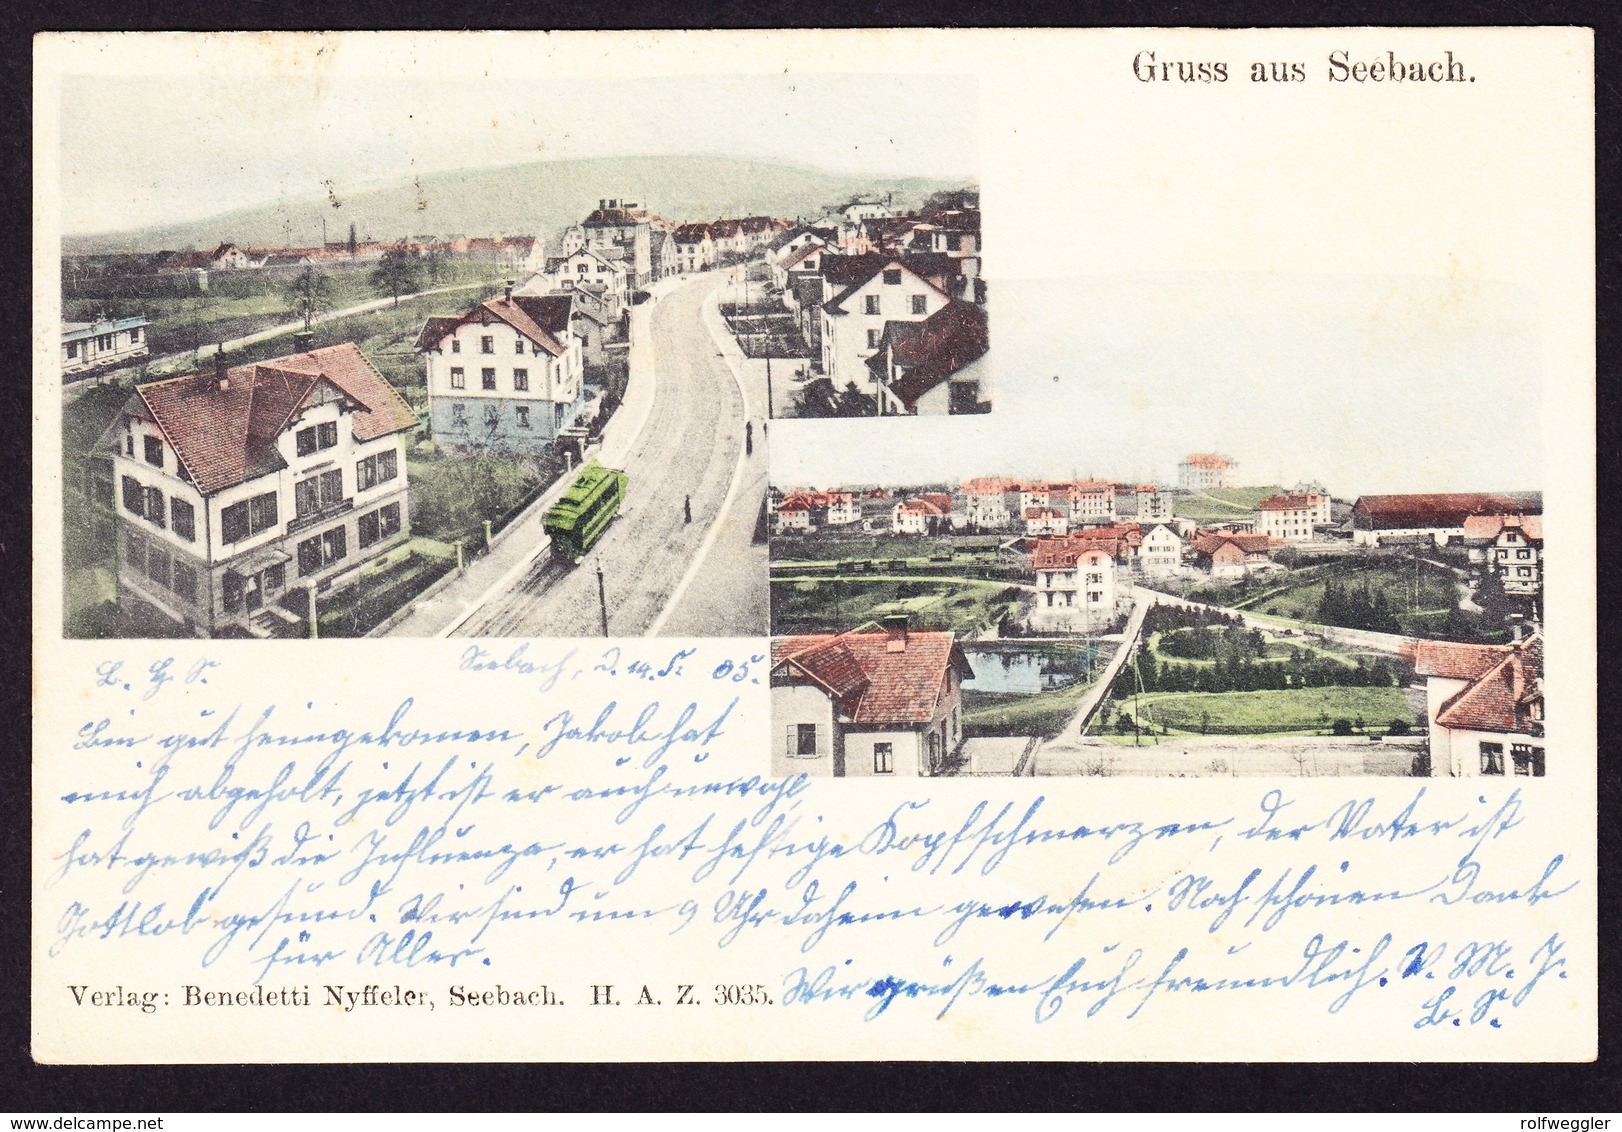 Gruss aus Seebach.
L. G. S. Seebach, d. 14. 5. 05.
Bin gut heimgekomen, Jakob hat
mich abgeholt, jetzt ist er auch unwohl,
hat gewiß die Influenza, er hat heftige Kopfschmerzen, der Vater ist
Gottlob gesund. Wir sind um 9 Uhr daheim gewesen. Noch schönen Dank
für Alles.
Wir grüßen Euch freundlich. V. M. J.
B. S.
Verlag: Benedetti Nyffeler, Seebach. H. A. Z. 3035.
rolfweggler